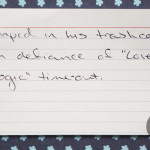 mped in his trashca
n defiance of "Love
ogic" timeout.